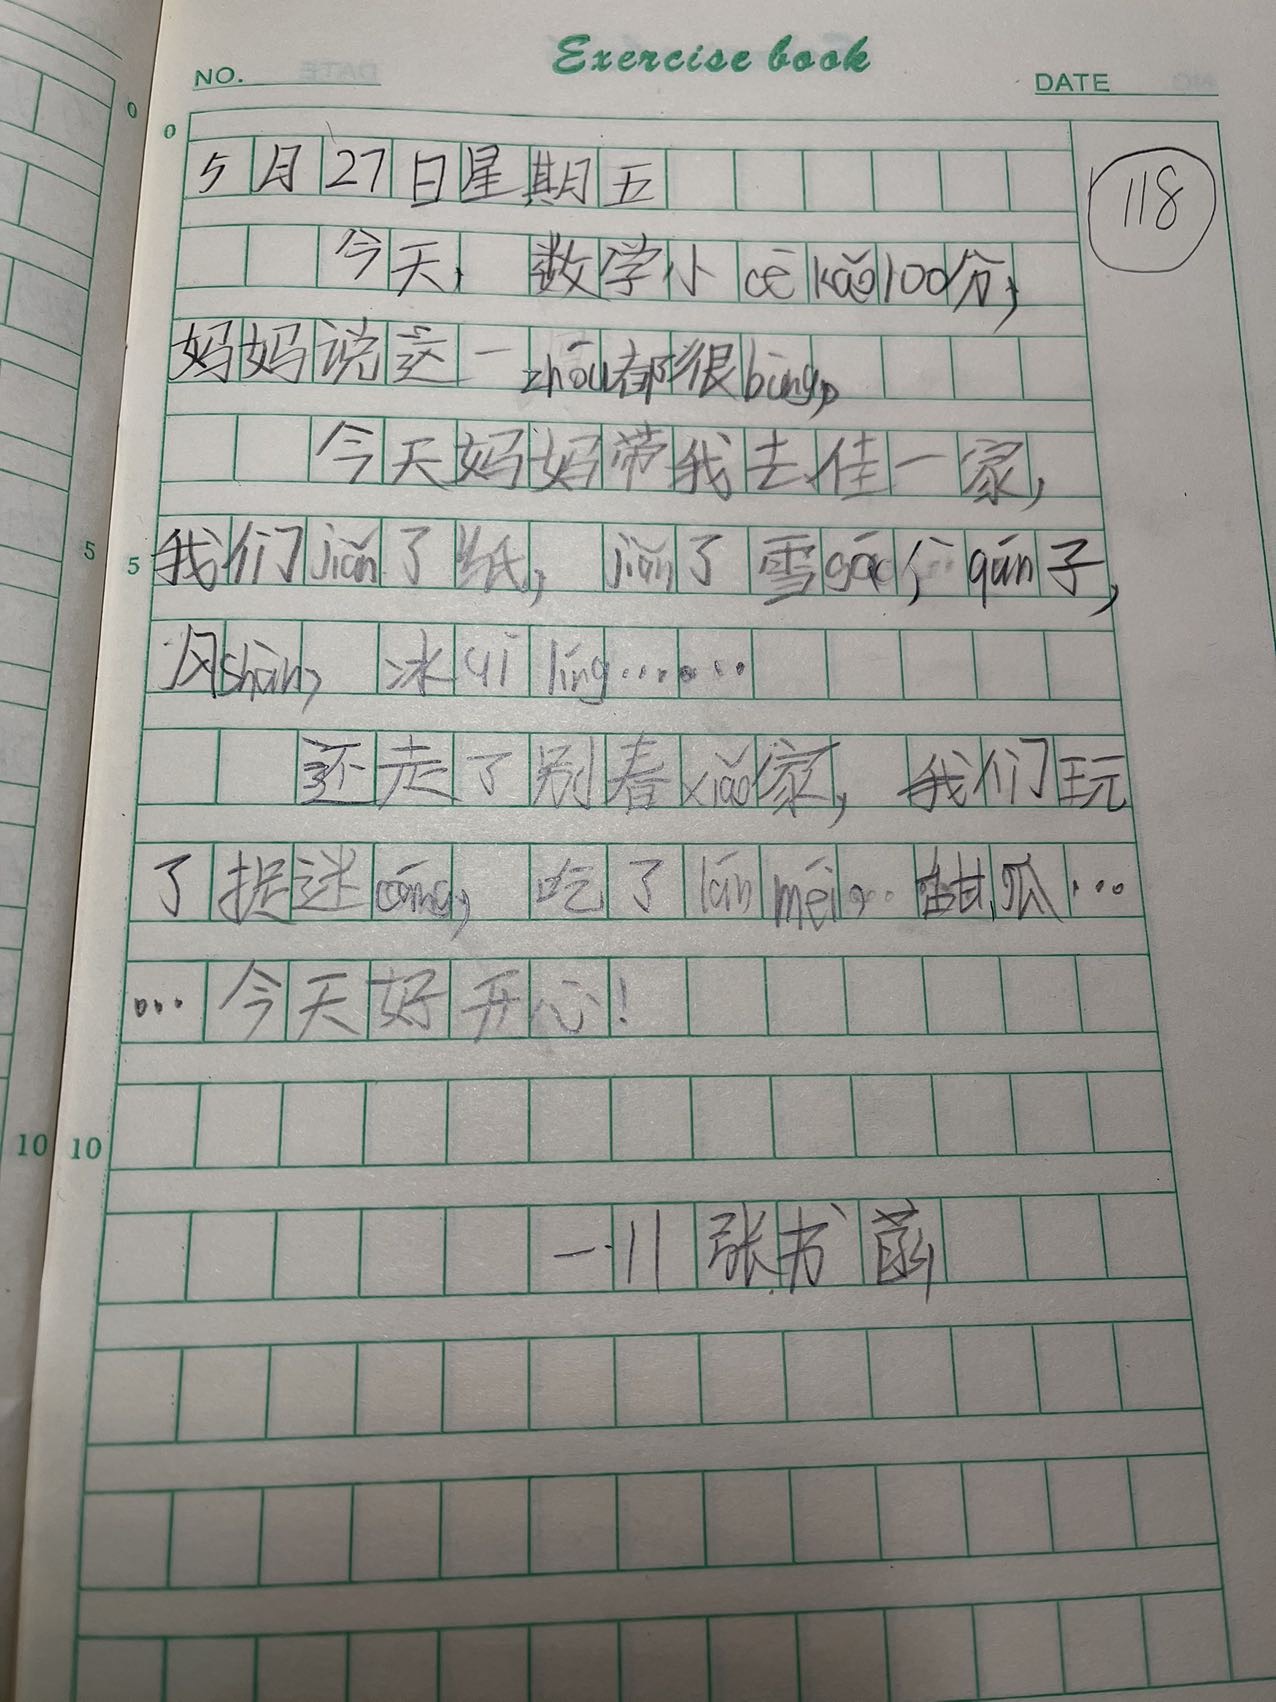 Exercise book
NO. DATE
0 0
5月27日星期五
118
今天,数学小cè kǎo100分,
妈妈说这一zhōu都很bàng,
今天妈妈带我去佳一家,
5 5
我们jiǎn了纸,jiǎn了雪gāo,qún子,
风shàn,冰qí líng……
还走了别春xiǎo家,我们玩
了捉迷cáng,吃了lán méi,甜瓜…
…今天好开心!
10 10
一·11张书菡